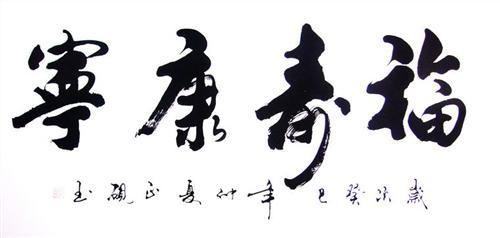 福寿康寧
歲次癸巳年仲夏正硯